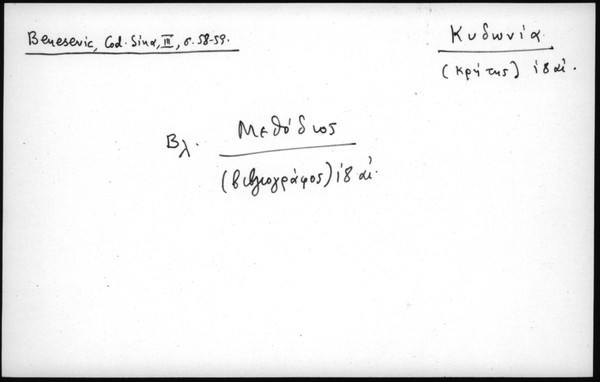 Benesevic, Cod. Sina, III, σ. 58-59.
Κυδωνία
(Κρήτης) ι8 αἰ.
Βλ. Μεθόδιος
(βιβλιογράφος) ι8 αἰ.